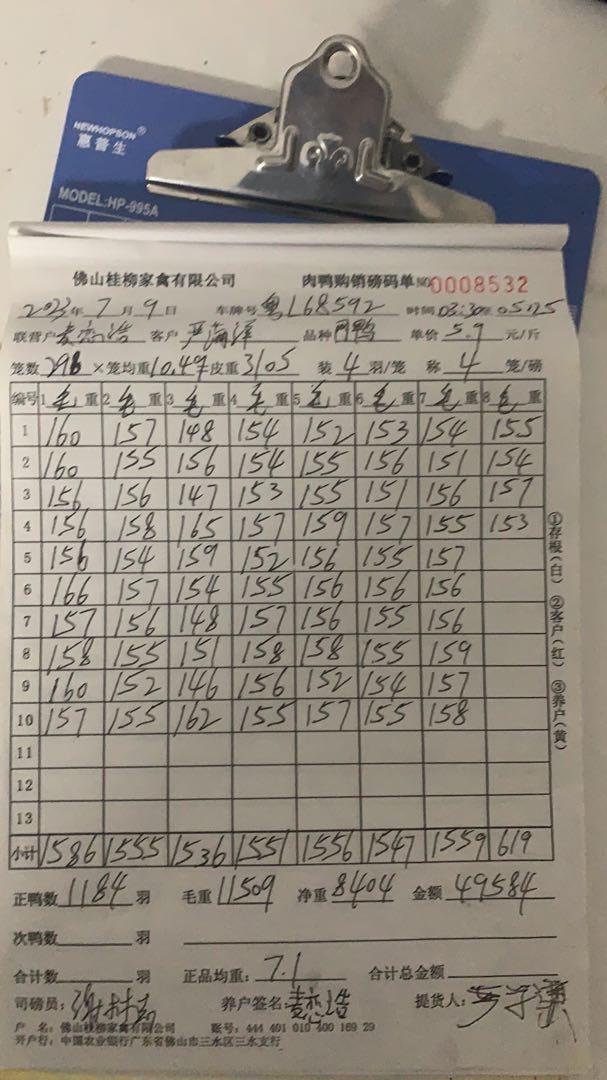 NEWHOPSON®
惠普生
MODEL:HP-995A
佛山桂柳家禽有限公司 肉鸭购销磅码单 NO 0008532
2023年 7月 9日 车牌号 粤L68592 时间 03:30至05:25
联营户 麦恋浩 客户 品种 鸭 单价 5.9 元/斤
笼数 296 ×笼均重 10.49 皮重 3105 装 4 羽/笼 称 4 笼/磅
编号 1 毛 重 2 毛 重 3 毛 重 4 毛 重 5 毛 重 6 毛 重 7 毛 重 8 毛 重
1 160 157 148 154 152 153 154 155
2 160 155 156 154 155 156 151 154
3 156 156 147 153 155 151 156 157
4 156 158 165 157 159 157 155 153
5 156 154 159 152 156 155 157
6 166 157 154 155 156 156 156
7 157 156 148 157 156 155 156
8 158 155 151 158 158 155 159
9 160 152 146 156 152 154 157
10 157 155 162 155 157 155 158
11
12
13
小计 1586 1555 1536 1551 1556 1547 1559 619
正鸭数 1184 羽 毛重 11509 净重 8404 金额 49584
次鸭数 羽
合计数 羽 正品均重: 7.1 合计总金额
司磅员: 养户签名: 麦恋浩 提货人:
户 名: 佛山桂柳家禽有限公司 账号: 444 401 010 400 169 29
开户行: 中国农业银行广东省佛山市三水区三水支行
①存根(白) ②客户(红) ③养户(黄)